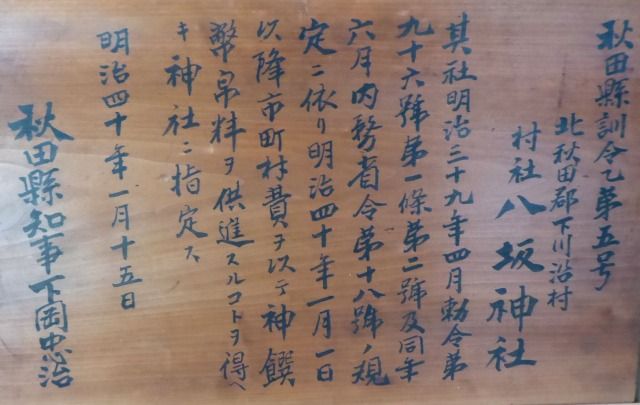 秋田縣訓令乙第五号
北秋田郡下川沿村
村社八坂神社
其社明治三十九年四月勅令第
九十六號第一條第二號及同年
六月内務省令第十八號ノ規
定ニ依リ明治四十年一月一日
以降市町村費ヲ以テ神饌
幣帛料ヲ供進スルコトヲ得ヘ
キ神社ニ指定ス
明治四十年一月十五日
秋田縣知事下岡忠治